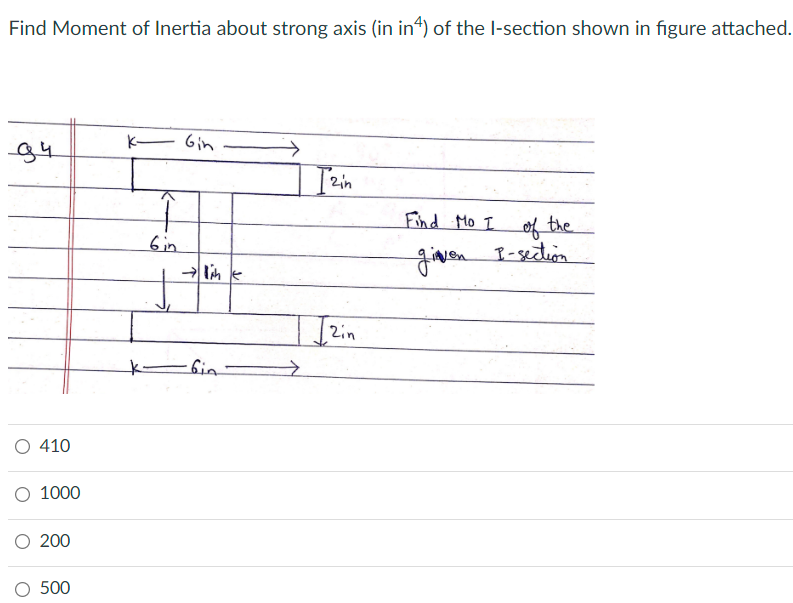 Find Moment of Inertia about strong axis (in in⁴) of the I-section shown in figure attached.
Q4
6in
2in
Find Mo I of the
6in
given I-section
1in
2in
6in
410
1000
200
500